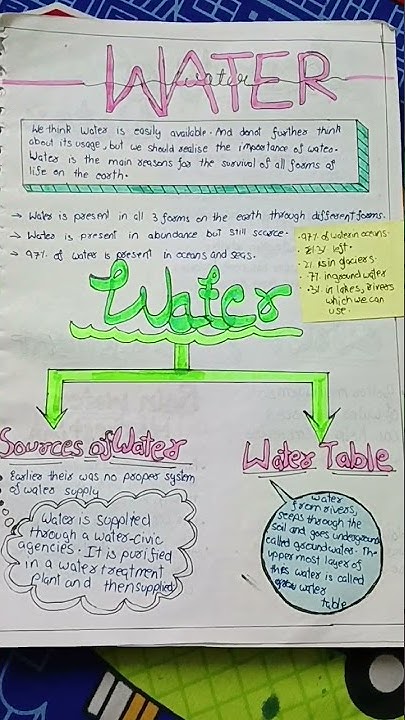 WATER
water
We think water is easily available. And donot further think
about its usage, but we should realise the importance of water.
Water is the main reasons for the survival of all forms of
life on the earth.
→ Water is present in all 3 forms on the earth through different forms.
→ Water is present in abundance but still scarce.
→ 97% of water is present in oceans and seas.
• 97% of water in oceans.
• 3% left.
• 2% is in glaciers.
• .7% in ground water
• .3% in lakes, rivers
which we can
use.
Water
Sources of Water
Water Table
• Earlier theirs was no proper system
of water supply
Water is supplied
through a water-civic
agencies. It is purified
in a water treatment
plant and then supplied
water
from rivers,
seeps through the
soil and goes underground
called groundwater. The
upper most layer of
this water is called
water
table